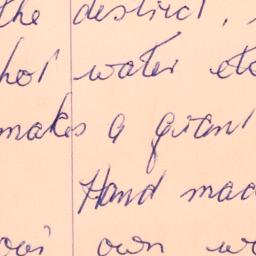 the district,
hot water etc
makes a giant
Hand mad
own w